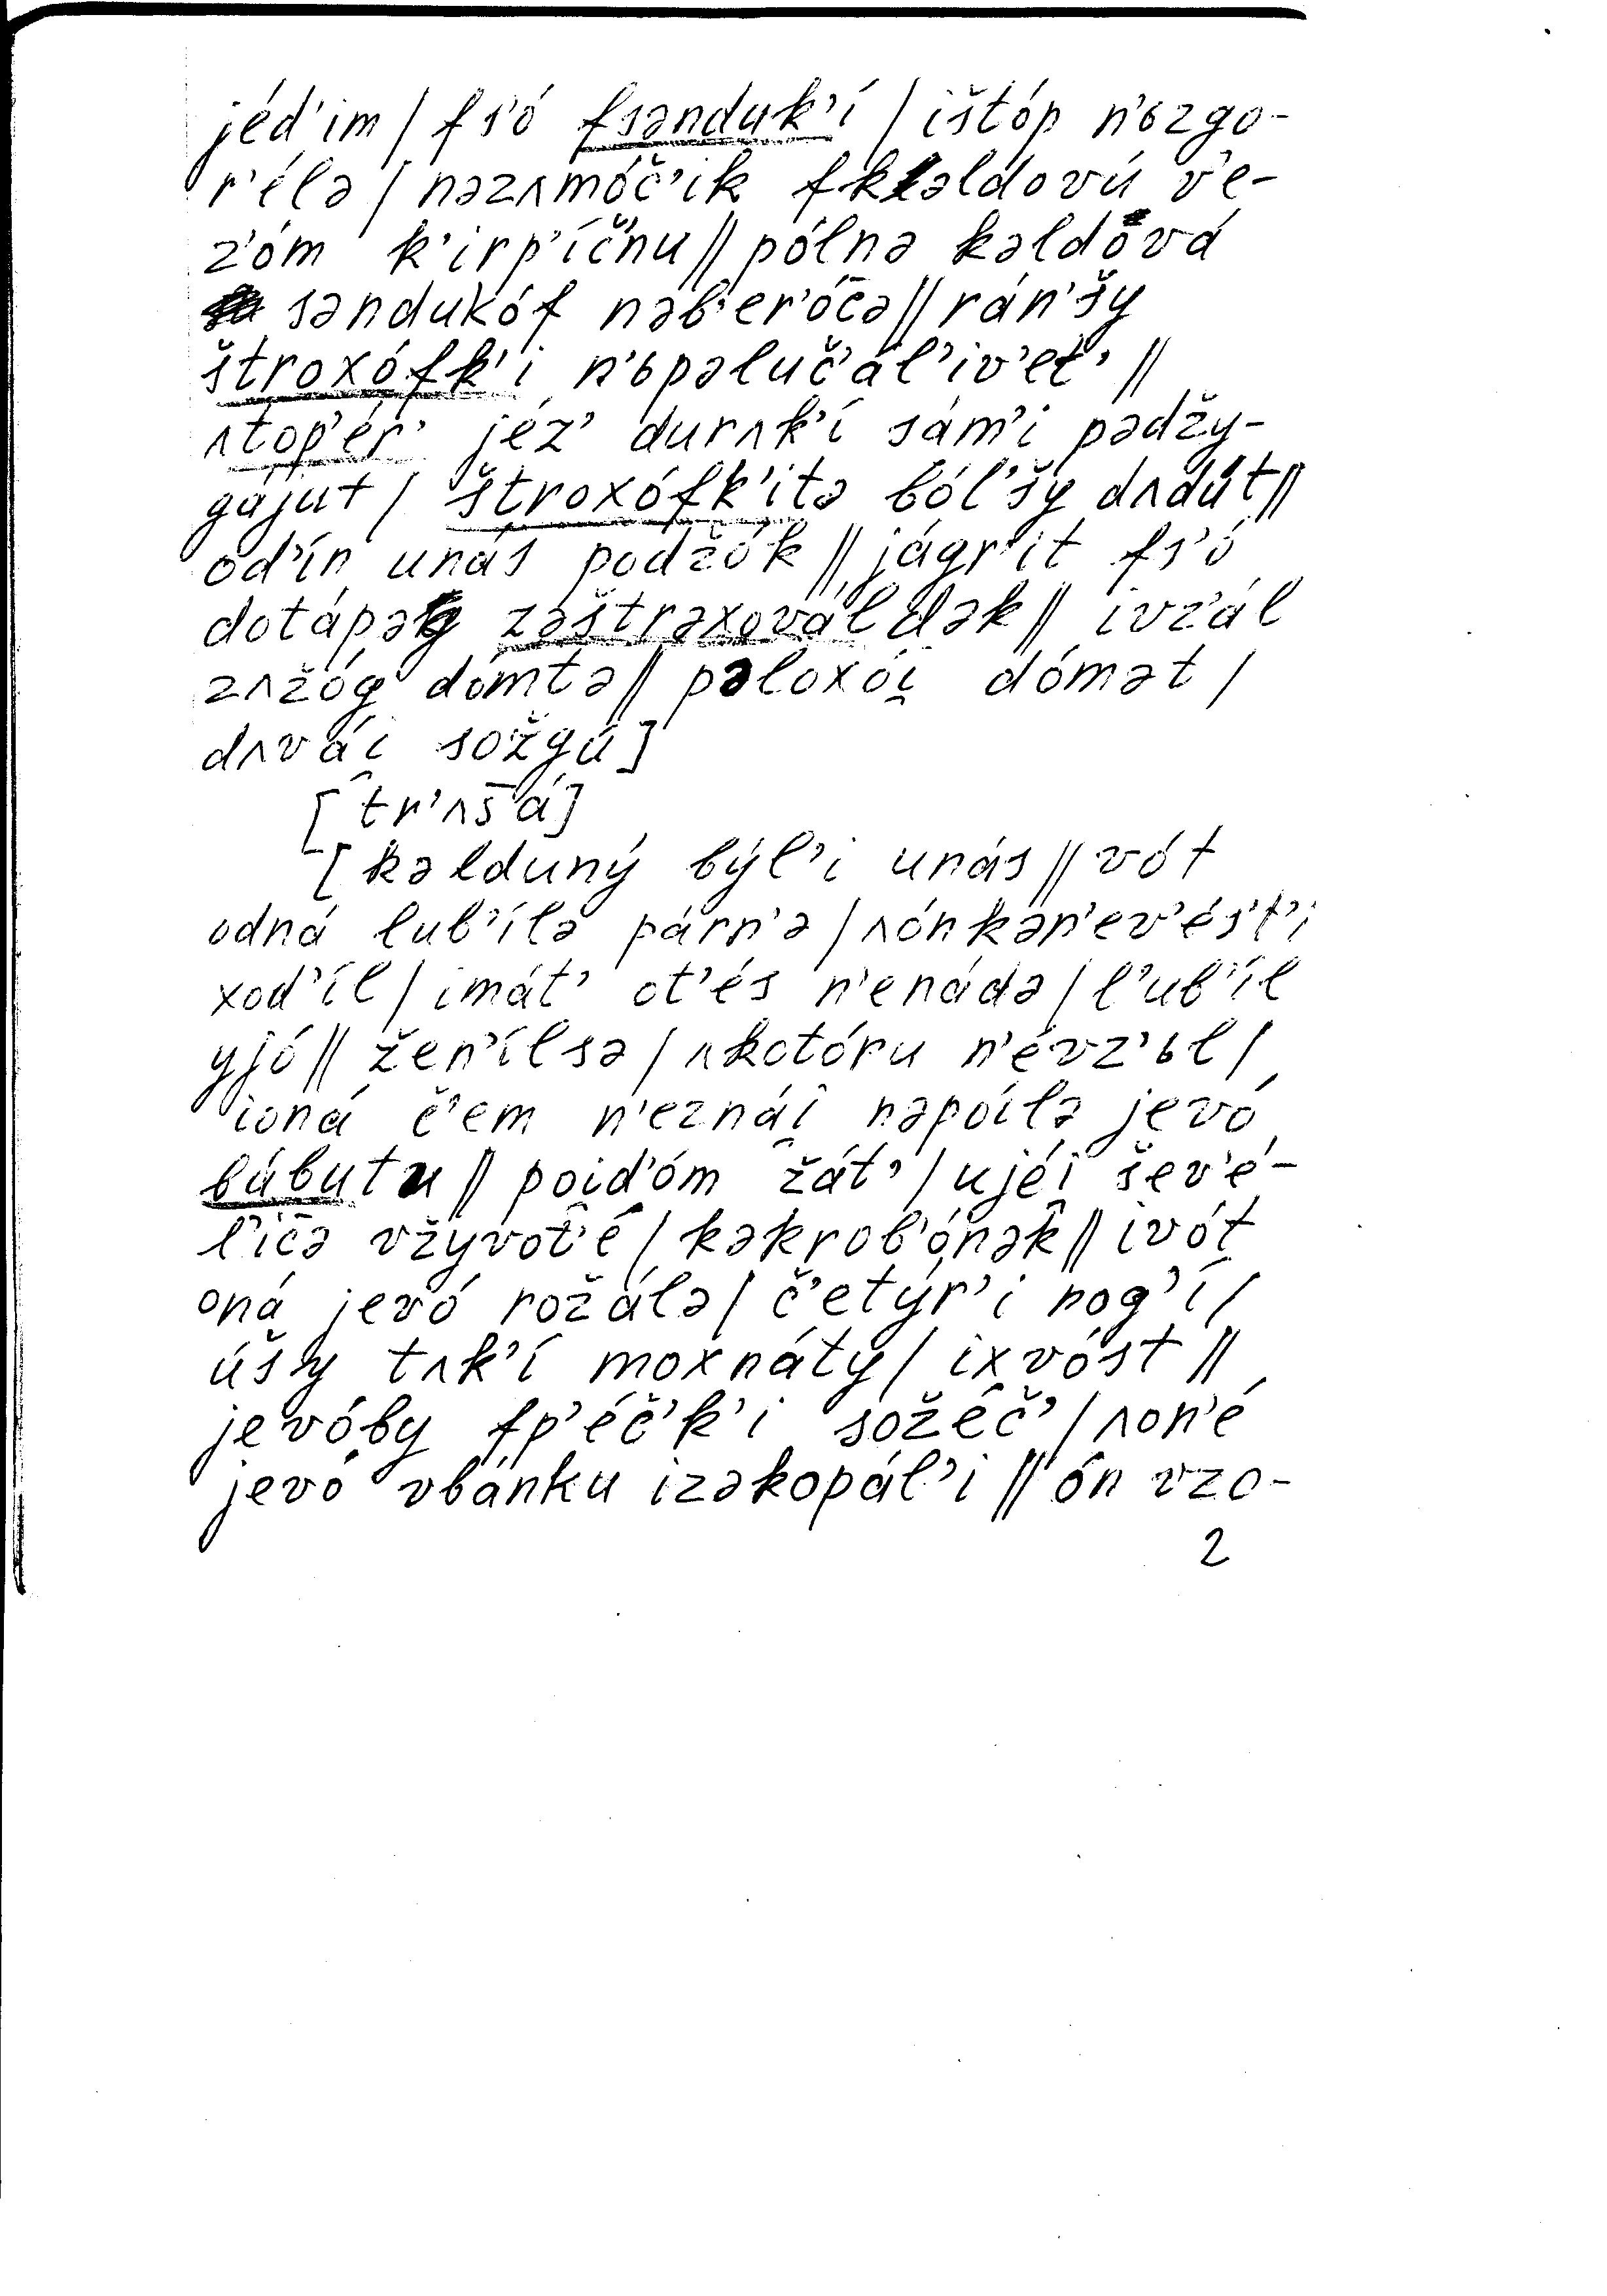 jéd’im / fs’ó fsənduk’í / ištóp n’ьzgo-
r’élə / nəzʌmóč’ik fkəldovú v’e-
z’óm k’irp’íčnu // pólnə kəldová
sənduḱóf nəb’er’óc̄ə // rán’šy
štroxófk’i n’ьpəluč’ál’iv’et’ //
ʌtop’ér’ jéz’ durʌk’í sám’i pədžy-
gájut / štroxófk’itə ból’šy dʌdút //
od’ín unás podžók // jágr’it fs’ó
dotápəg zəštrəxovál dək // ivz’ál
zʌžóg dómtə // pəloxói̯ dómət /
dʌvái̯ sožgú]
[tr’ʌs̄’á]
[kəlduný býl’i unás // vót
odná lub’ílə párn’ə / ʌónkən’ev’és’t’i
xod’íl / imát’ ot’és n’enádə / l’ub’íl
yjó // žen’ílsə / ʌkotóru n’évz’ьl /
ioná č’em n’eznái̯ nəpóilə jevó
bábutu // poid’óm žát’ / ujéi̯ šev’é-
l’ic̄ə vžyvot’é / kəkrob’ónək // ivót
oná jevó rožálə / č’etýr’i nog’í /
úšy tʌk’í moxnáty / ixvóst //
jevóby fp’éč’k’i sožéč’ / ʌon’é
jevó vbánku izəkopál’i // ón vzo-
2